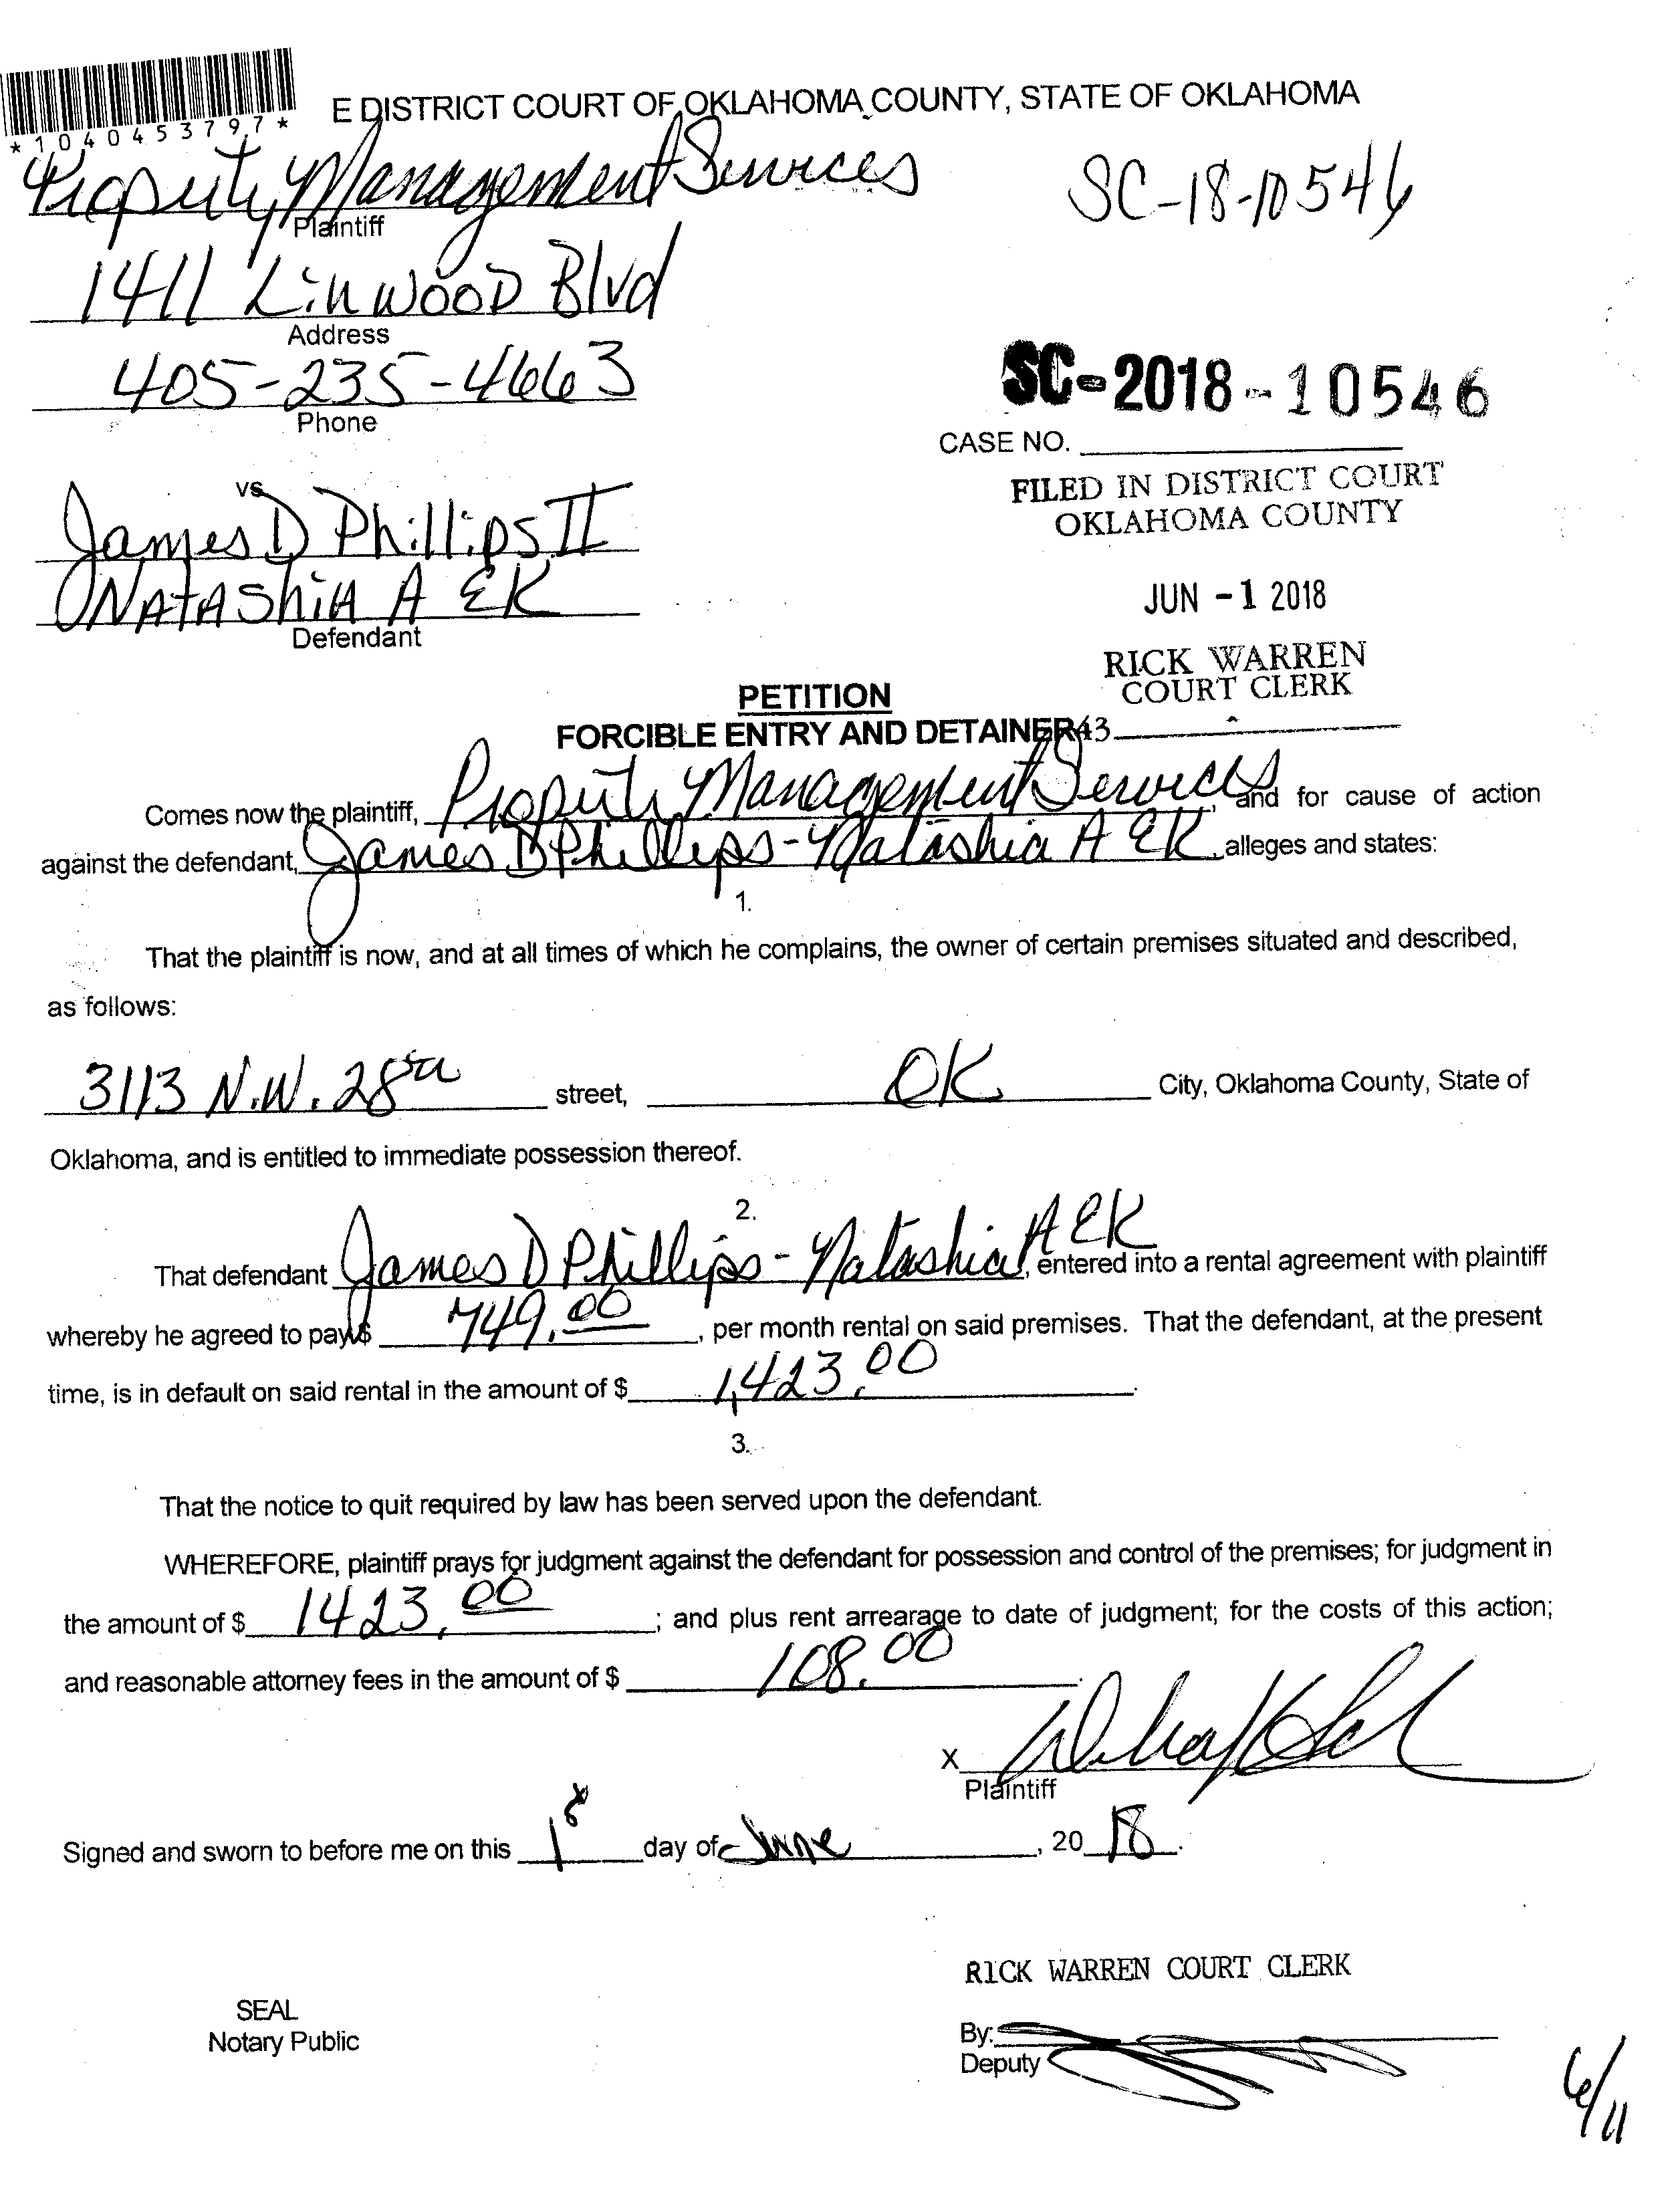 *1040453797*
E DISTRICT COURT OF OKLAHOMA COUNTY, STATE OF OKLAHOMA
Property Management Services
Plaintiff
SC-18-10546
1411 Linwood Blvd
Address
405-235-4663
Phone
SC-2018-10546
CASE NO.
FILED IN DISTRICT COURT
OKLAHOMA COUNTY
JUN -1 2018
RICK WARREN
COURT CLERK
43
vs
James D Phillips II
Natashia A EK
Defendant
PETITION
FORCIBLE ENTRY AND DETAINER
Comes now the plaintiff, Property Management Services, and for cause of action
against the defendant, James D Phillips - Natashia A EK, alleges and states:
1.
That the plaintiff is now, and at all times of which he complains, the owner of certain premises situated and described,
as follows:
3113 N.W. 28th street, OK City, Oklahoma County, State of
Oklahoma, and is entitled to immediate possession thereof.
2.
That defendant James D Phillips - Natashia A EK, entered into a rental agreement with plaintiff
whereby he agreed to pay $ 749.00, per month rental on said premises. That the defendant, at the present
time, is in default on said rental in the amount of $ 1,423.00.
3.
That the notice to quit required by law has been served upon the defendant.
WHEREFORE, plaintiff prays for judgment against the defendant for possession and control of the premises; for judgment in
the amount of $ 1423.00; and plus rent arrearage to date of judgment; for the costs of this action;
and reasonable attorney fees in the amount of $ 108.00.
X
Plaintiff
Signed and sworn to before me on this 1st day of June, 2018.
RICK WARREN COURT CLERK
SEAL
Notary Public
By:
Deputy
6/11